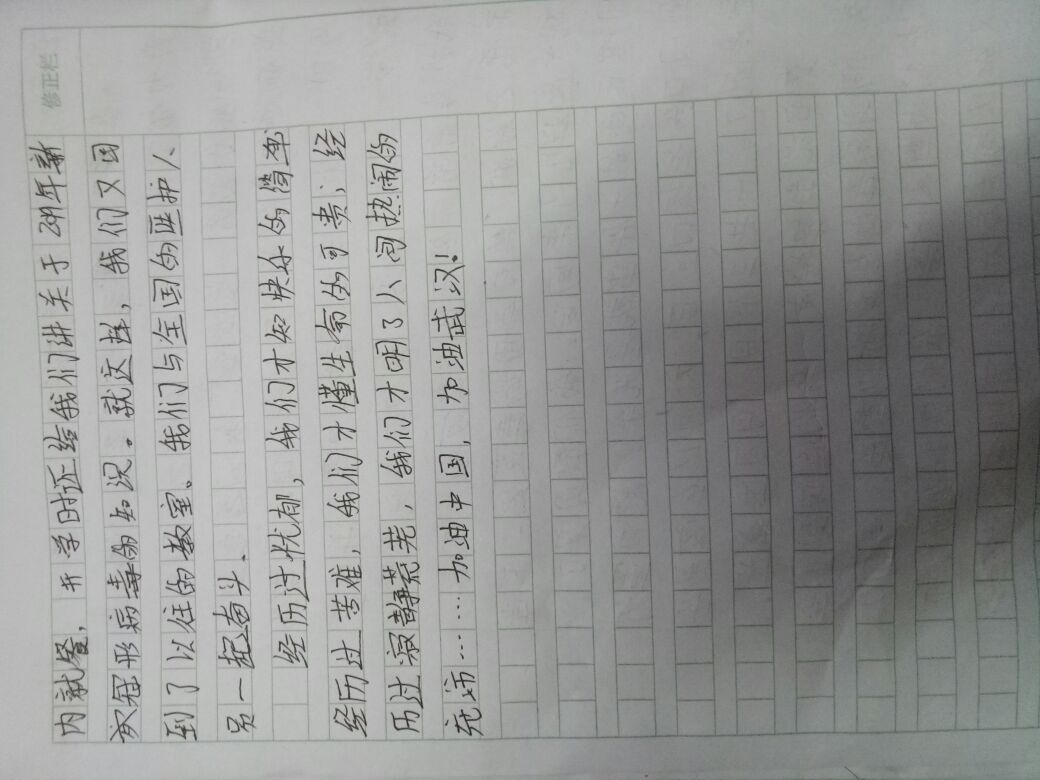 修正栏
内就餐，开学时还给我们讲关于2019年新
状冠形病毒的知识。就这样，我们又回
到了以往的教室。我们与全国的医护人
员一起奋斗。
经历过忧郁，我们才知快乐的简单
经历过苦难，我们才懂生命的可贵；经
历过寂静荒芜，我们才明了人间热闹的
充沛……加油中国，加油武汉！